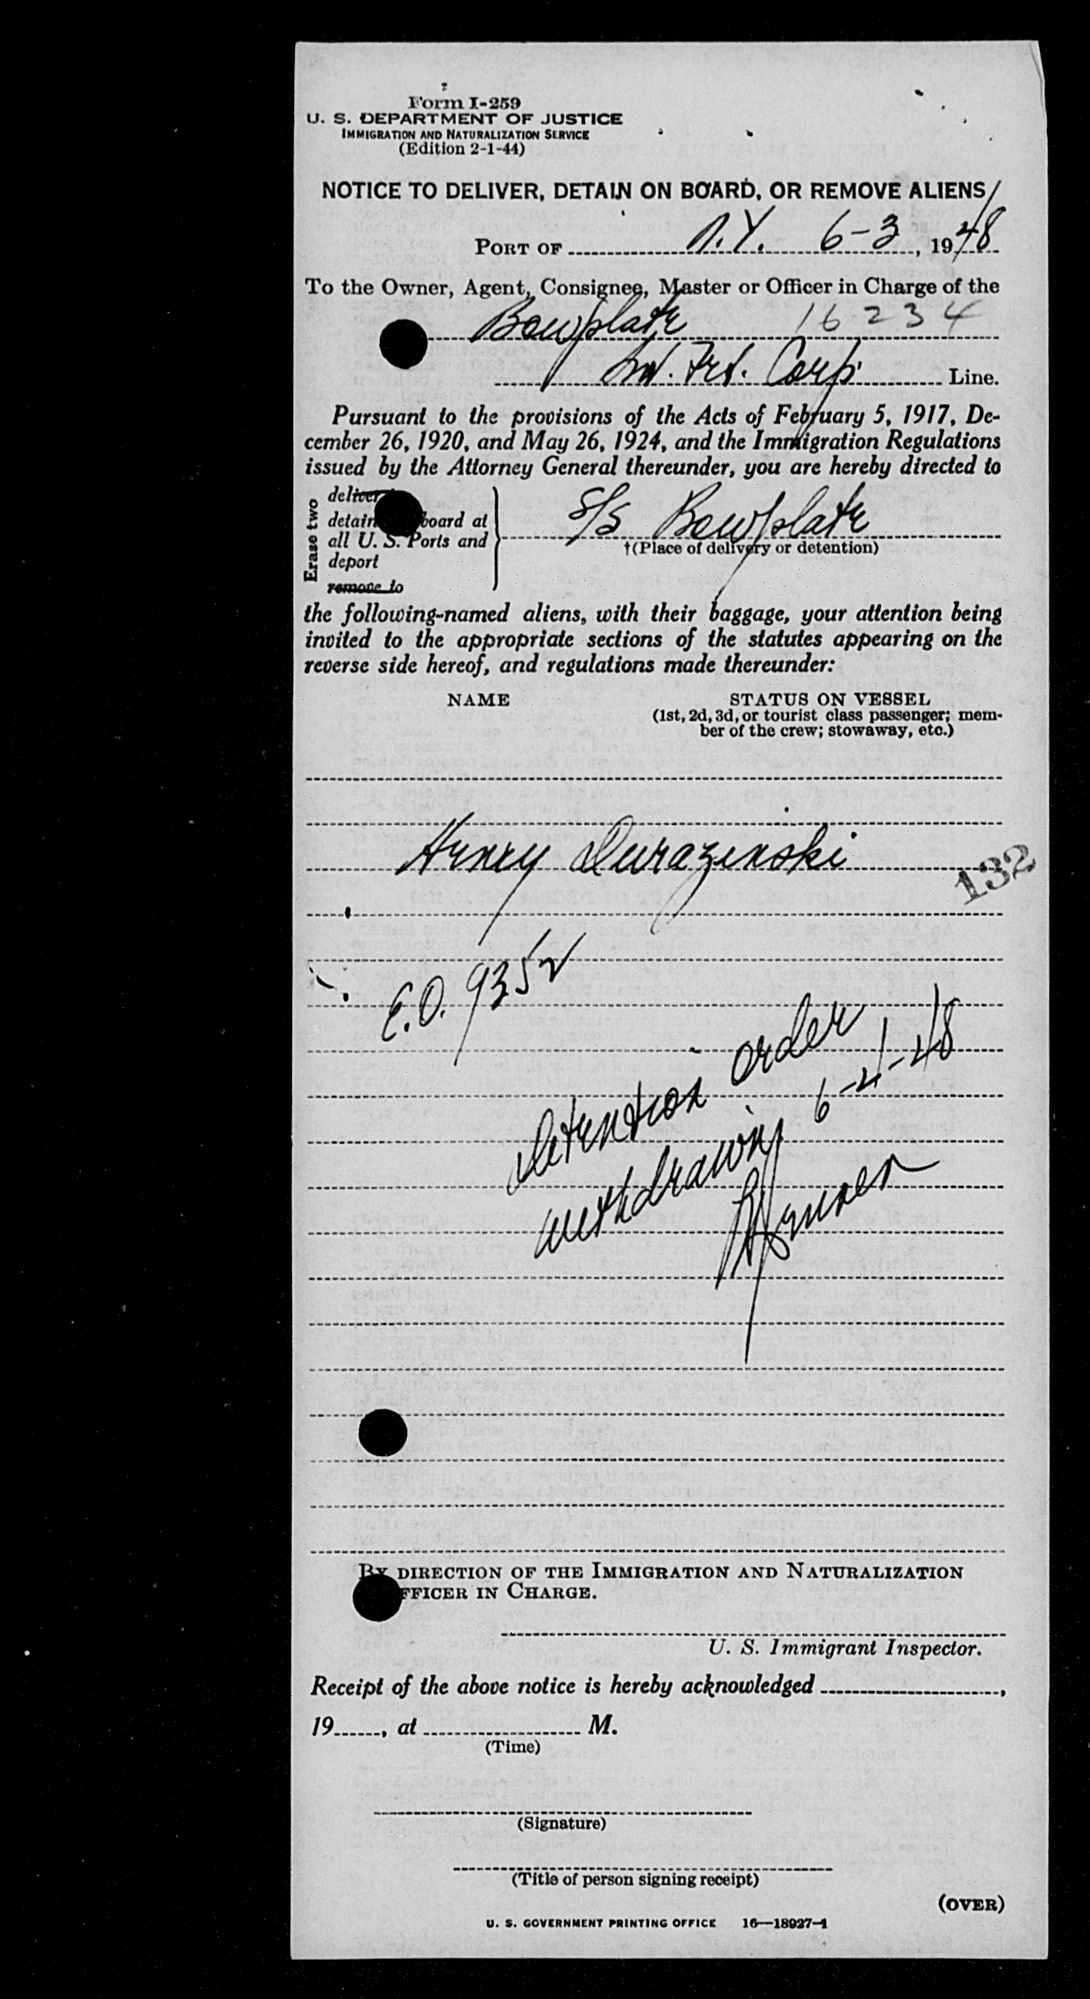 Form I-259
U. S. DEPARTMENT OF JUSTICE
IMMIGRATION AND NATURALIZATION SERVICE
(Edition 2-1-44)
NOTICE TO DELIVER, DETAIN ON BOARD, OR REMOVE ALIENS
PORT OF N.Y. 6-3, 1948
To the Owner, Agent, Consignee, Master or Officer in Charge of the
Bowplate 16234
Frt. Corp. Line.
Pursuant to the provisions of the Acts of February 5, 1917, De-
cember 26, 1920, and May 26, 1924, and the Immigration Regulations
issued by the Attorney General thereunder, you are hereby directed to
Erase two
deliver
detain board at
all U. S. Ports and
deport
remove to
S/S Bowplate
†(Place of delivery or detention)
the following-named aliens, with their baggage, your attention being
invited to the appropriate sections of the statutes appearing on the
reverse side hereof, and regulations made thereunder:
NAME STATUS ON VESSEL
(1st, 2d, 3d, or tourist class passenger; mem-
ber of the crew; stowaway, etc.)
Henry Durazinski
132
E.O. 9352
Detention order
withdrawn 6-4-48
By DIRECTION OF THE IMMIGRATION AND NATURALIZATION
FFICER IN CHARGE.
U. S. Immigrant Inspector.
Receipt of the above notice is hereby acknowledged ,
19 , at M.
(Time)
(Signature)
(Title of person signing receipt)
(OVER)
U. S. GOVERNMENT PRINTING OFFICE 16—18927-1